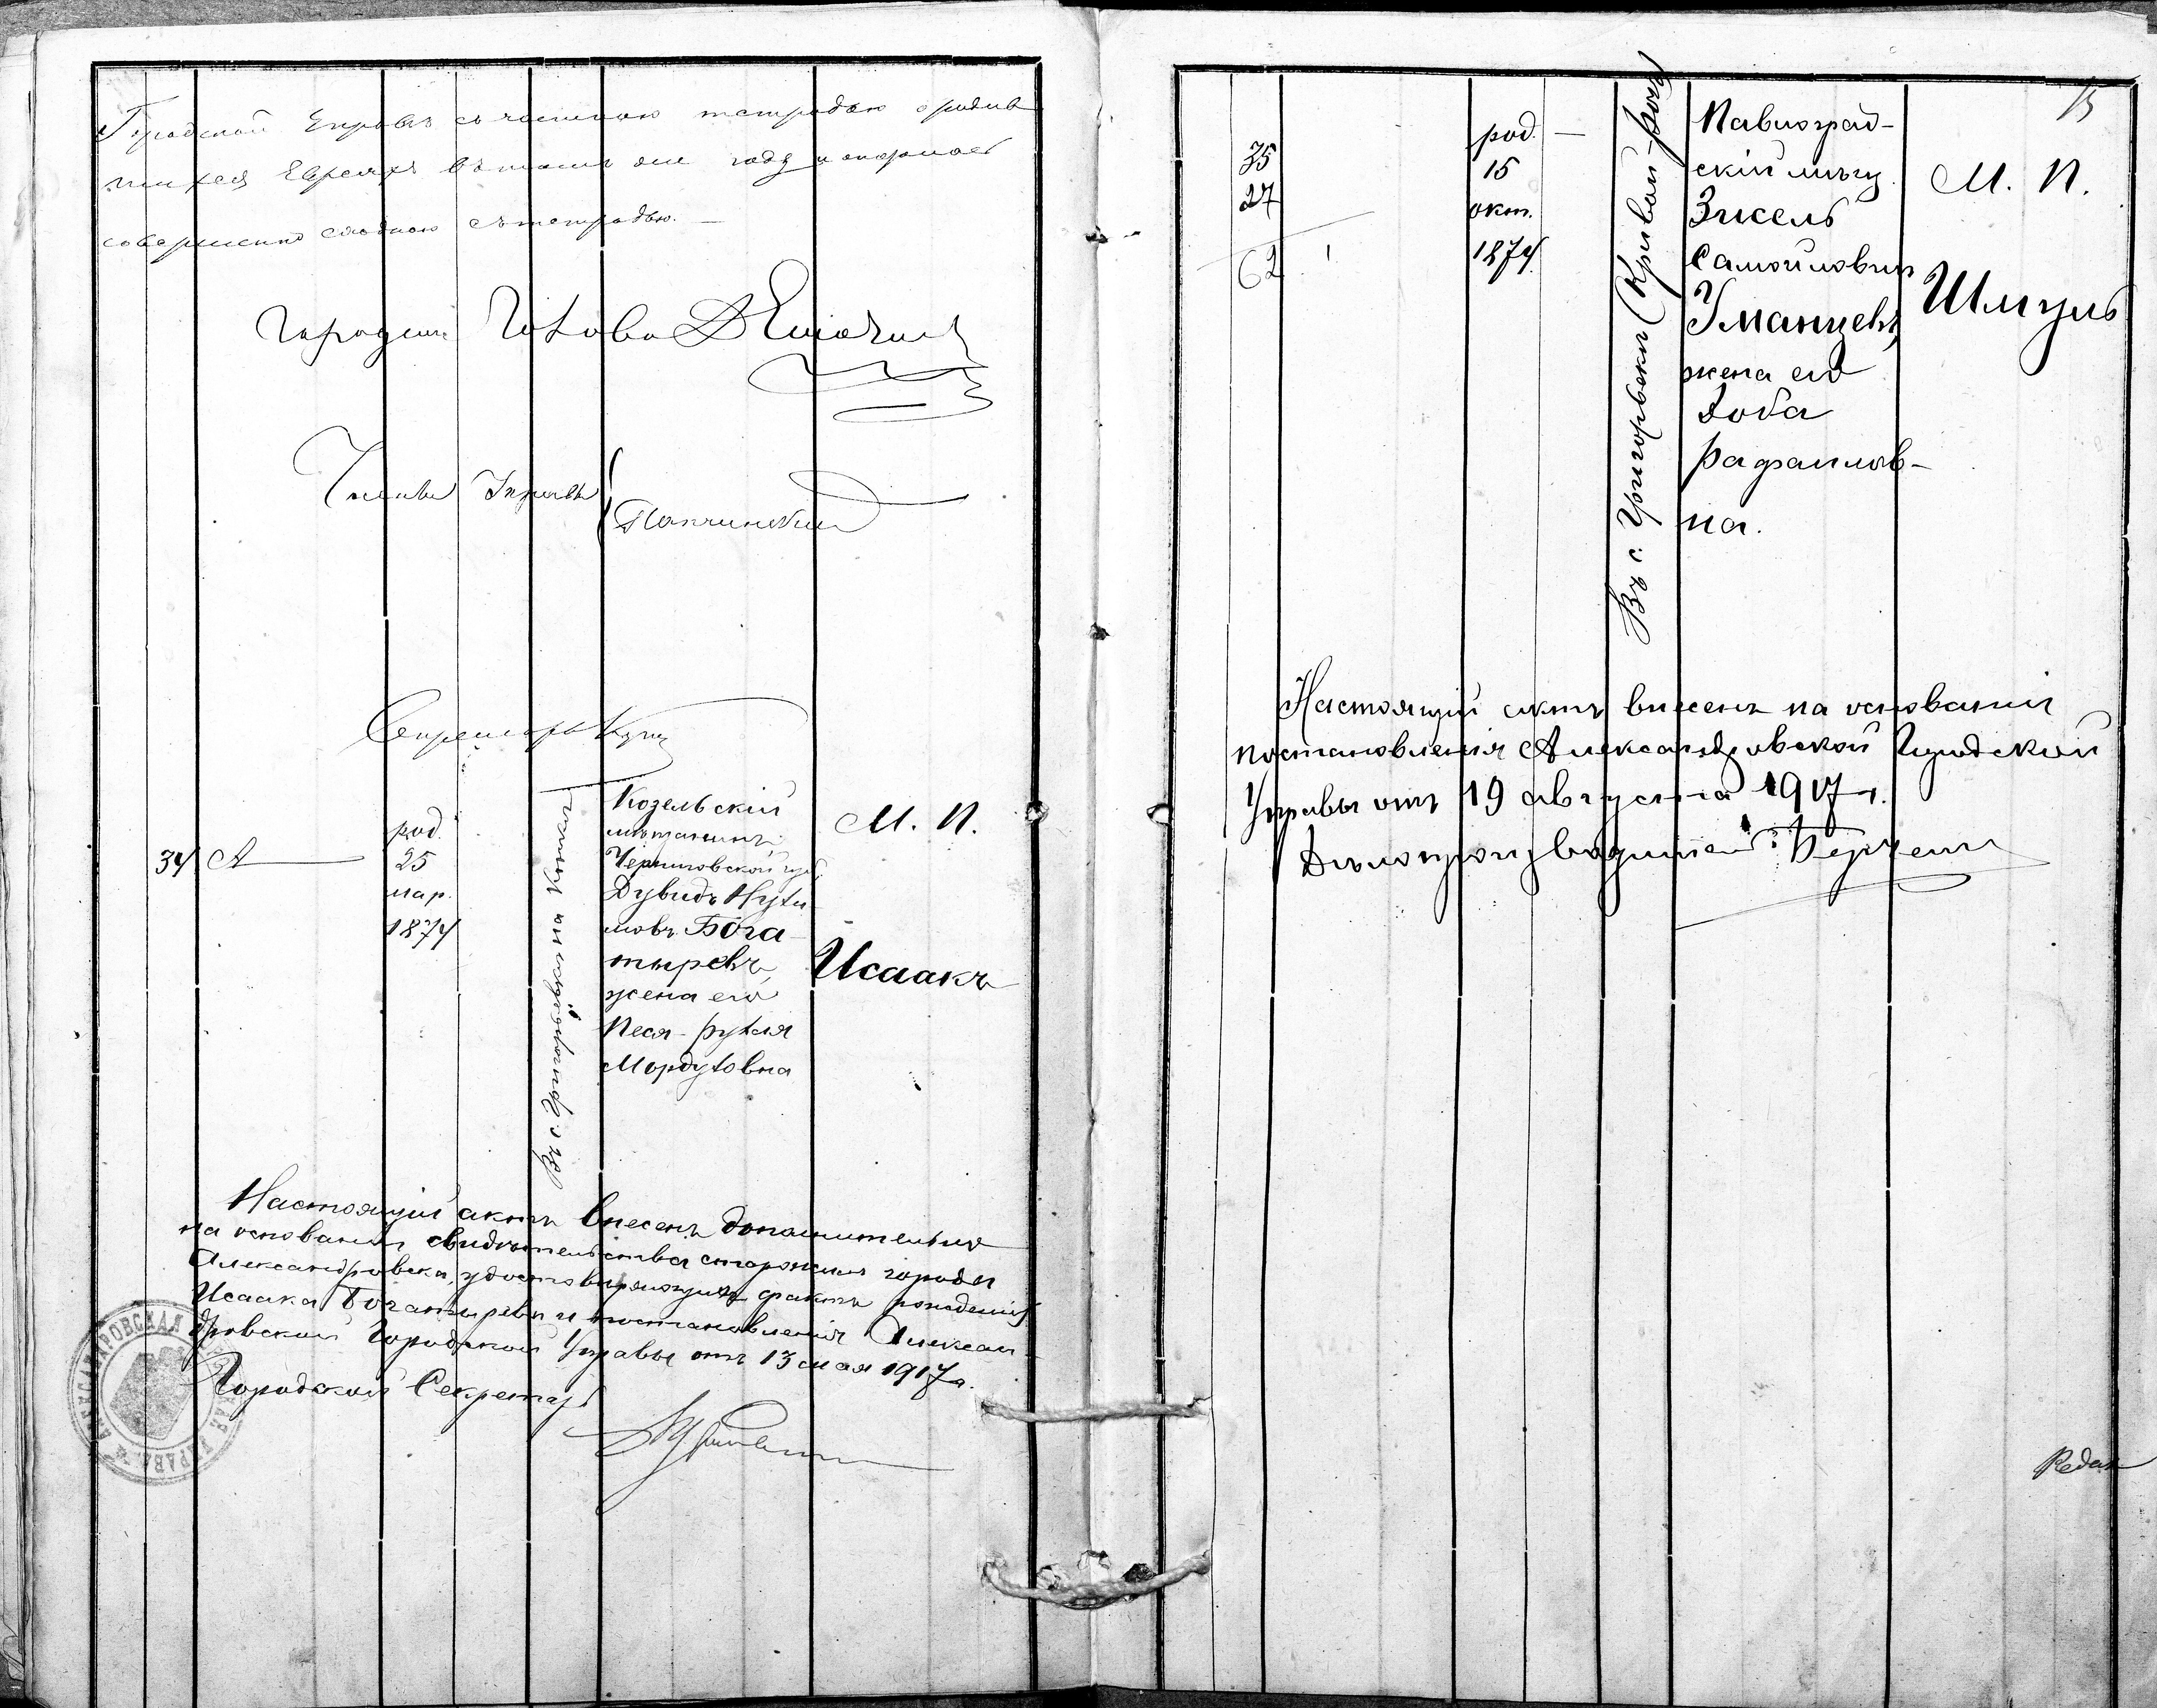 Городской Управѣ съ частною тетрадью о родив
шихся Евреяхъ въ томъ же году и оказалась
совершенно сходною съ тетрадью.
Городской Голова
Члены Управы
Секретарь
34
А
род.
25
мар.
1874
Въ с. Григорьевкѣ
Козельскій
мѣщанинъ,
Черниговской губ.
Дувидъ Нухи
мовъ Бога
тыревъ,
жена его
Песя-Рухля
Мордуховна
М. П.
Исаакъ
Настоящій актъ внесенъ дополнительно
на основаніи свидѣтельства старожиловъ города
Александровска, удостовѣряющихъ фактъ рожденія
Исаака Богатырева и постановленія Алексан
дровской Городской Управы отъ 13 мая 1917 г.
Городской Секретарь
АЛЕКСАНДРОВСКАЯ УПРАВА
15
35
27
62
род.
15
окт.
1874
Въ с. Григорьевкѣ (Кривой-Рогъ)
Павлоград-
скій мѣщ.
Зисель
Самойловичъ
Уманцевъ,
жена его
Доба
Рафаилов-
на.
М. П.
Шмуль
Настоящій актъ внесенъ на основаніи
постановленія Александровской Городской
Управы отъ 19 августа 1917 г.
Дѣлопроизводитель